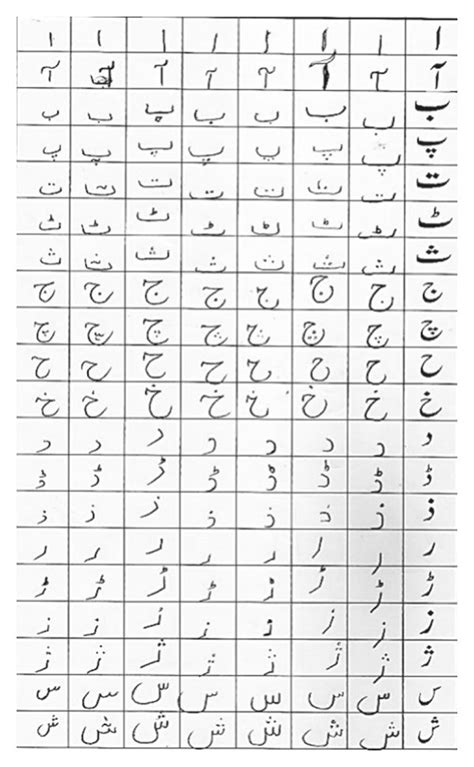 ا ا ا ا ا ا ا ا
آ آ آ آ آ آ آ آ
ب ب ب ب ب ب ب ب
پ پ پ پ پ پ پ پ
ت ت ت ت ت ت ت ت
ٹ ٹ ٹ ٹ ٹ ٹ ٹ ٹ
ث ث ث ث ث ث ث ث
ج ج ج ج ج ج ج ج
چ چ چ چ چ چ چ چ
ح ح ح ح ح ح ح ح
خ خ خ خ خ خ خ خ
د د د د د د د د
ڈ ڈ ڈ ڈ ڈ ڈ ڈ ڈ
ذ ذ ذ ذ ذ ذ ذ ذ
ر ر ر ر ر ر ر ر
ڑ ڑ ڑ ڑ ڑ ڑ ڑ ڑ
ز ز ز ز ز ز ز ز
ژ ژ ژ ژ ژ ژ ژ ژ
س س س س س س س س
ش ش ش ش ش ش ش ش